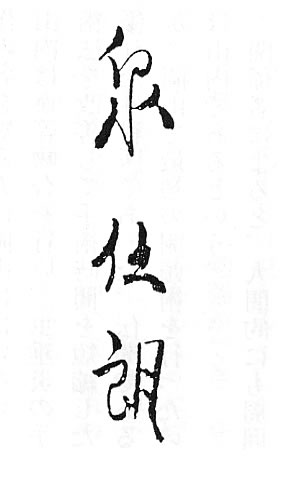 泉仕朗